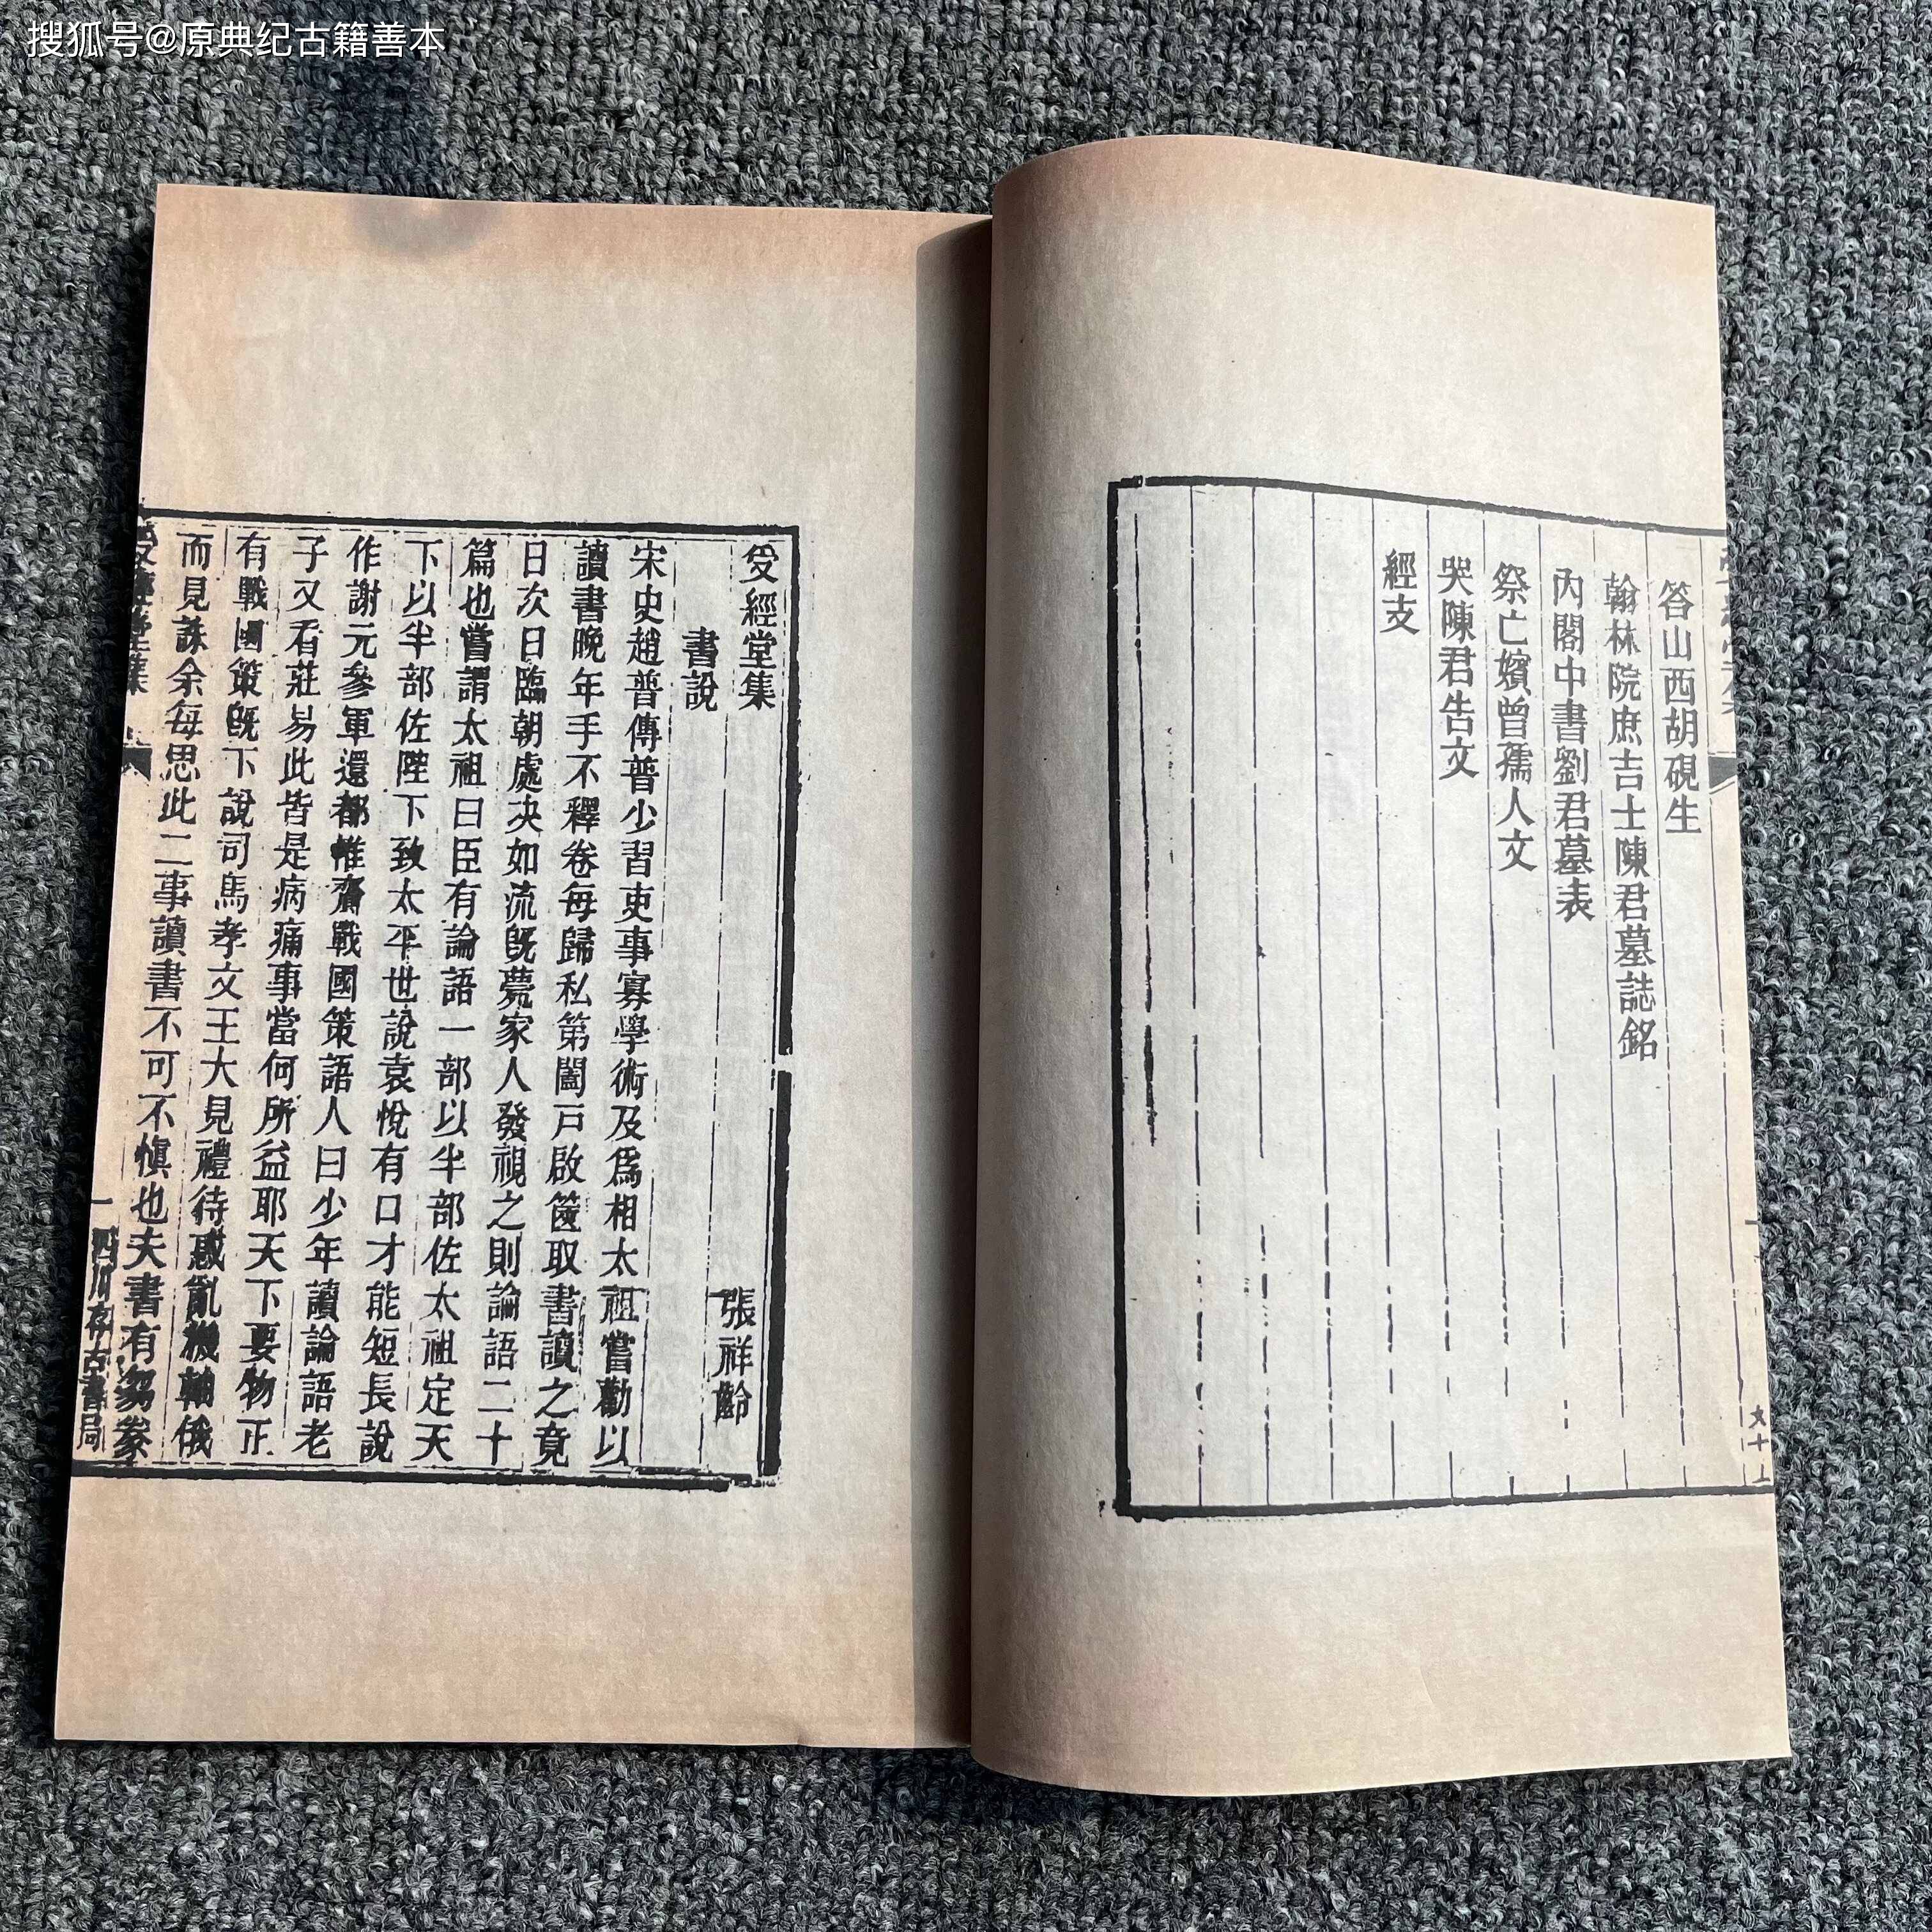 搜狐号@原典纪古籍善本
答山西胡硯生
翰林院庶吉士陳君墓誌銘
內閣中書劉君墓表
祭亡嬪曾孺人文
哭陳君告文
經支
受經堂集
張祥齡
書說
宋史趙普傳普少習吏事寡學術及爲相太祖嘗勸以
讀書晚年手不釋卷每歸私第闔戶啟篋取書讀之竟
日次日臨朝處決如流旣薨家人發視之則論語二十
篇也嘗謂太祖曰臣有論語一部以半部佐太祖定天
下以半部佐陛下致太平世說袁悅有口才能短長說
作謝元參軍還都惟齎戰國策語人曰少年讀論語老
子又看莊易此皆是病痛事當何所益耶天下要物正
有戰國策旣下說司馬孝文王大見禮待惑亂機軸俄
而見誅余每思此二事讀書不可不慎也夫書有芻豢
受經堂集
一
四川存古書局